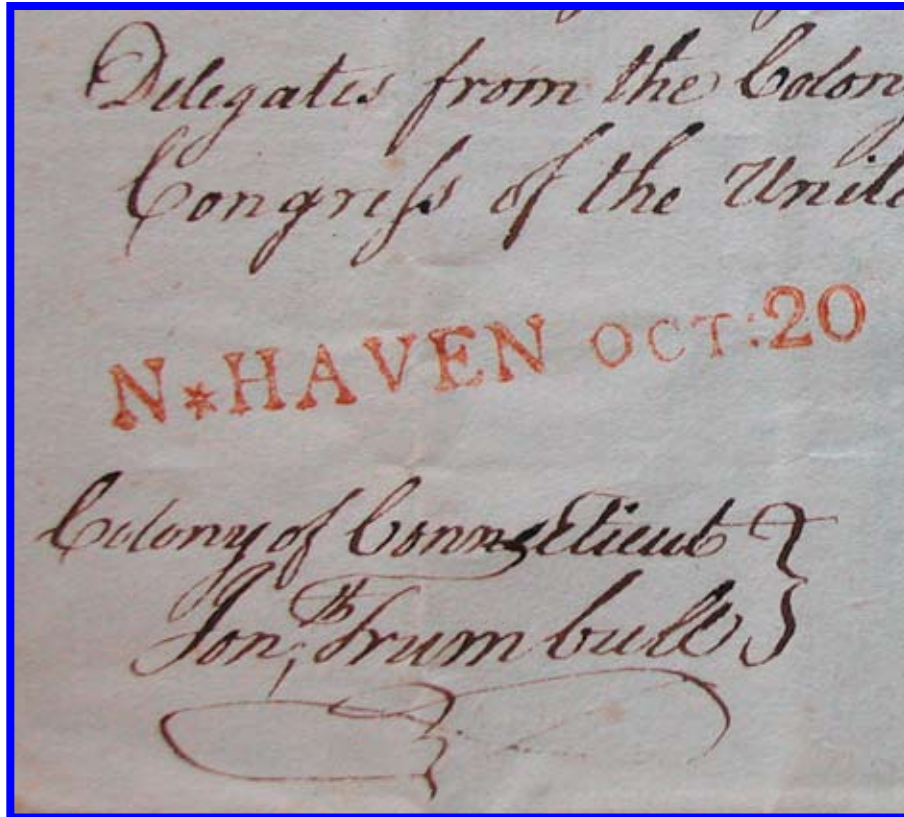 Delegates from the Colony
Congreſs of the Unite
N*HAVEN OCT:20
Colony of Connecticut }
Jonth Trumbull }